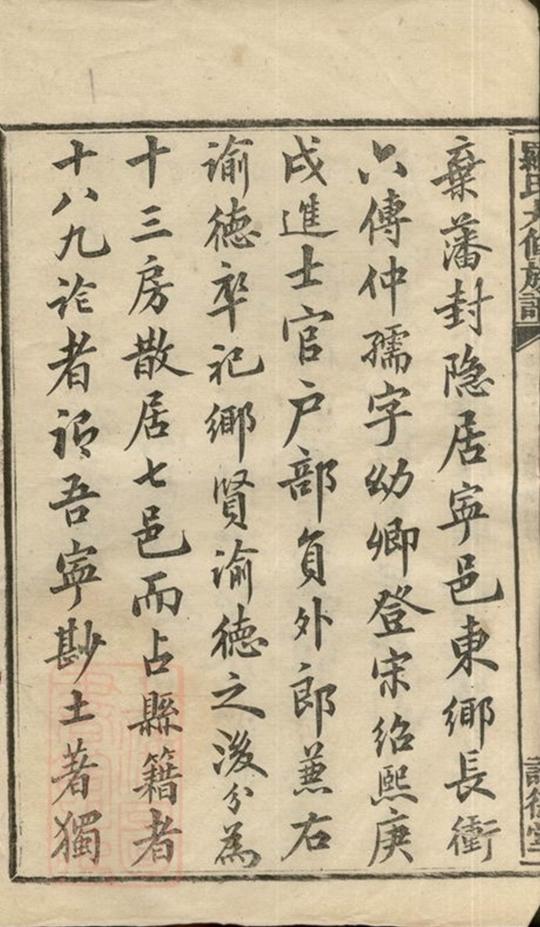 羅氏大修族譜
棄藩封隐居寜邑東鄉長衝
六傳仲孺字幼卿登宋紹熙庚
戌進士官户部負外郎蒹右
諭德卒祀鄉賢諭德之後分為
十三房散居七邑而占縣籍者
十八九論者謂吾寜尠土著獨